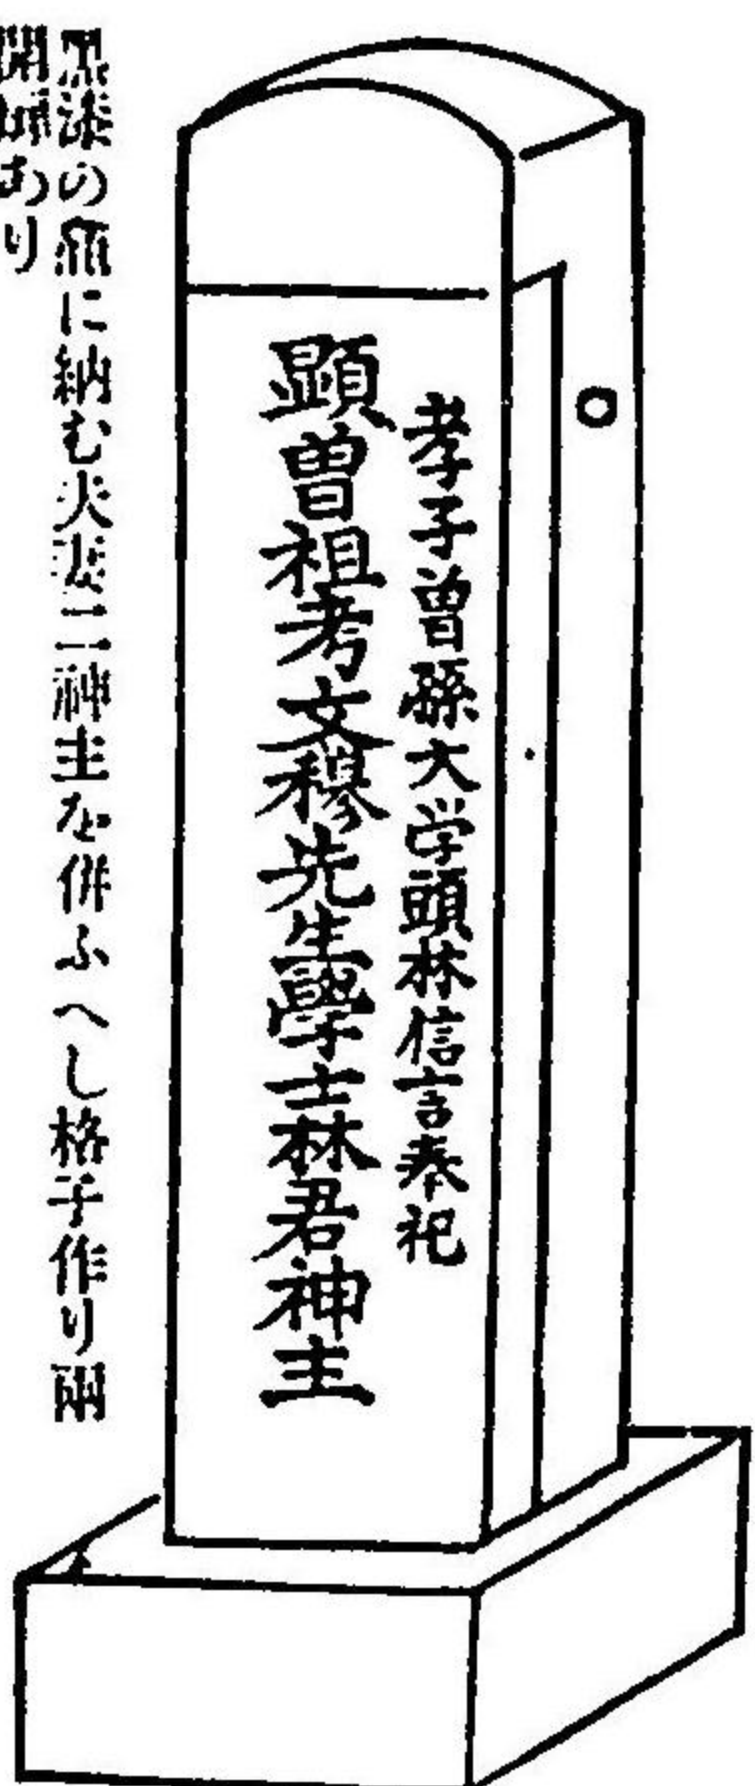 孝子曽孫大学頭林信言奉祀
顕曽祖考文穆先生學士林君神主
黒漆の箱に納む夫妻二神主を併ふへし格子作り兩
開扉あり